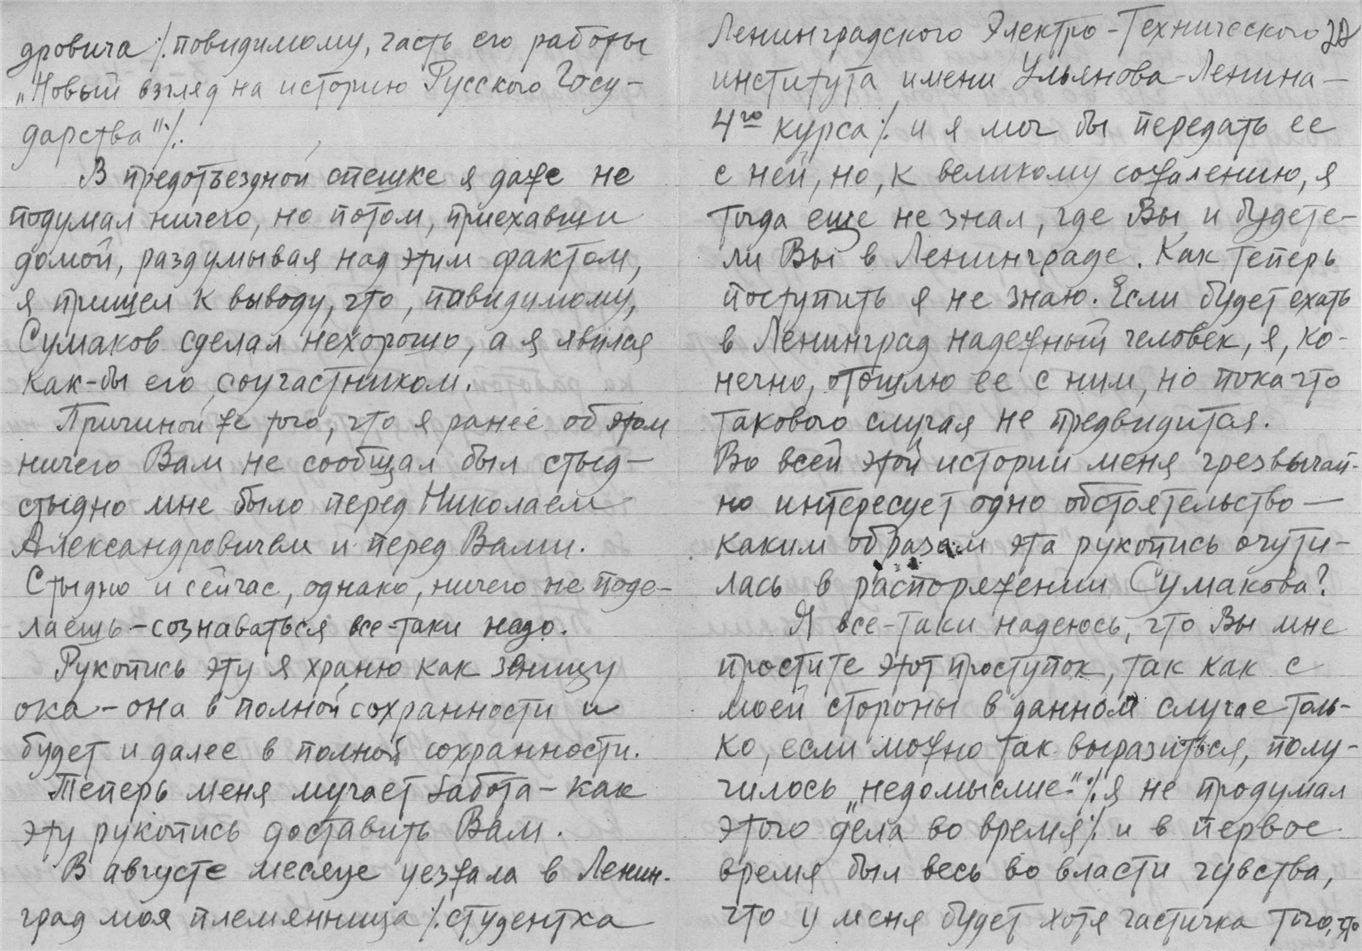 дровича ٪ повидимому, часть его работы
„Новый взгляд на историю Русского Госу-
дарства" ٪.
В предотъездной спешке я даже не
подумал ничего, но потом, приехавши
домой, раздумывая над этим фактом,
я пришел к выводу, что, повидимому,
Сумаков сделал нехорошо, а я явился
как-бы его соучастником.
Причиной же того, что я ранее об этом
ничего Вам не сообщал был стыд-
стыдно мне было перед Николаем
Александровичем и перед Вами.
Стыдно и сейчас, однако, ничего не поде-
лаешь - сознаваться все-таки надо.
Рукопись эту я храню как зеницу
ока - она в полной сохранности и
будет и далее в полной сохранности.
Теперь меня мучает забота - как
эту рукопись доставить Вам.
В августе месяце уезжала в Ленин-
град моя племянница ٪ студентка
Ленинградского Электро-Технического
института имени Ульянова-Ленина -
4го курса ٪ и я мог бы передать ее
с ней, но, к великому сожалению, я
тогда еще не знал, где Вы, и будете-
ли Вы в Ленинграде. Как теперь
поступить я не знаю. Если будет ехать
в Ленинград надежный человек, я, ко-
нечно, отошлю ее с ним, но пока что
такового случая не предвидится.
Во всей этой истории меня чрезвычай-
но интересует одно обстоятельство -
каким образом эта рукопись очути-
лась в распоряжении Сумакова?
Я все-таки надеюсь, что Вы мне
простите этот проступок, так как с
моей стороны в данном случае толь-
ко, если можно так выразиться, полу-
чилось „недомыслие" ٪ я не продумал
этого дела во время ٪ и в первое
время был весь во власти чувства,
что у меня будет хотя частичка того, что